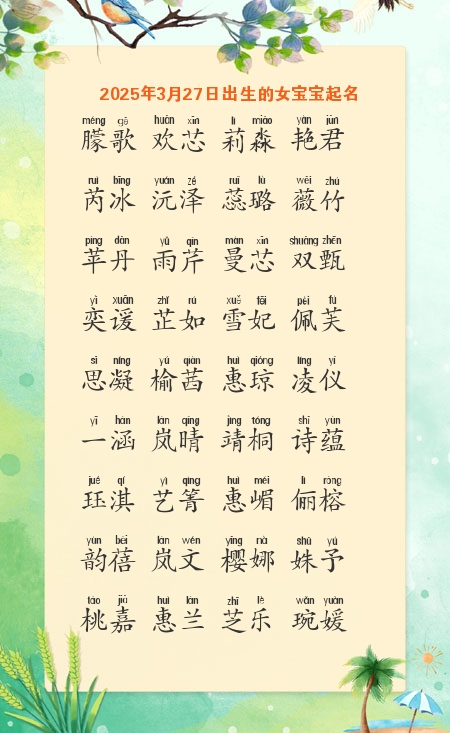 2025年3月27日出生的女宝宝起名
méng gē huān xīn lì miǎo yàn jūn
朦歌 欢芯 莉淼 艳君
ruì bīng yuán zé ruǐ lù wēi zhú
芮冰 沅泽 蕊璐 薇竹
píng dān yǔ qín màn xīn shuāng zhēn
苹丹 雨芹 曼芯 双甄
yì xuān zhǐ rú xuě fēi pèi fú
奕谖 芷如 雪妃 佩芙
sī níng yú qiàn huì qióng líng yí
思凝 榆茜 惠琼 凌仪
yī hán lán qíng jìng tóng shī yùn
一涵 岚晴 靖桐 诗蕴
jué qí yì qìng huì mèi lì róng
珏淇 艺箐 惠嵋 俪榕
yùn bèi lán wén yīng nà shū yú
韵蓓 岚文 樱娜 姝予
táo jiā huì lán zhī lè wǎn yuàn
桃嘉 惠兰 芝乐 琬媛